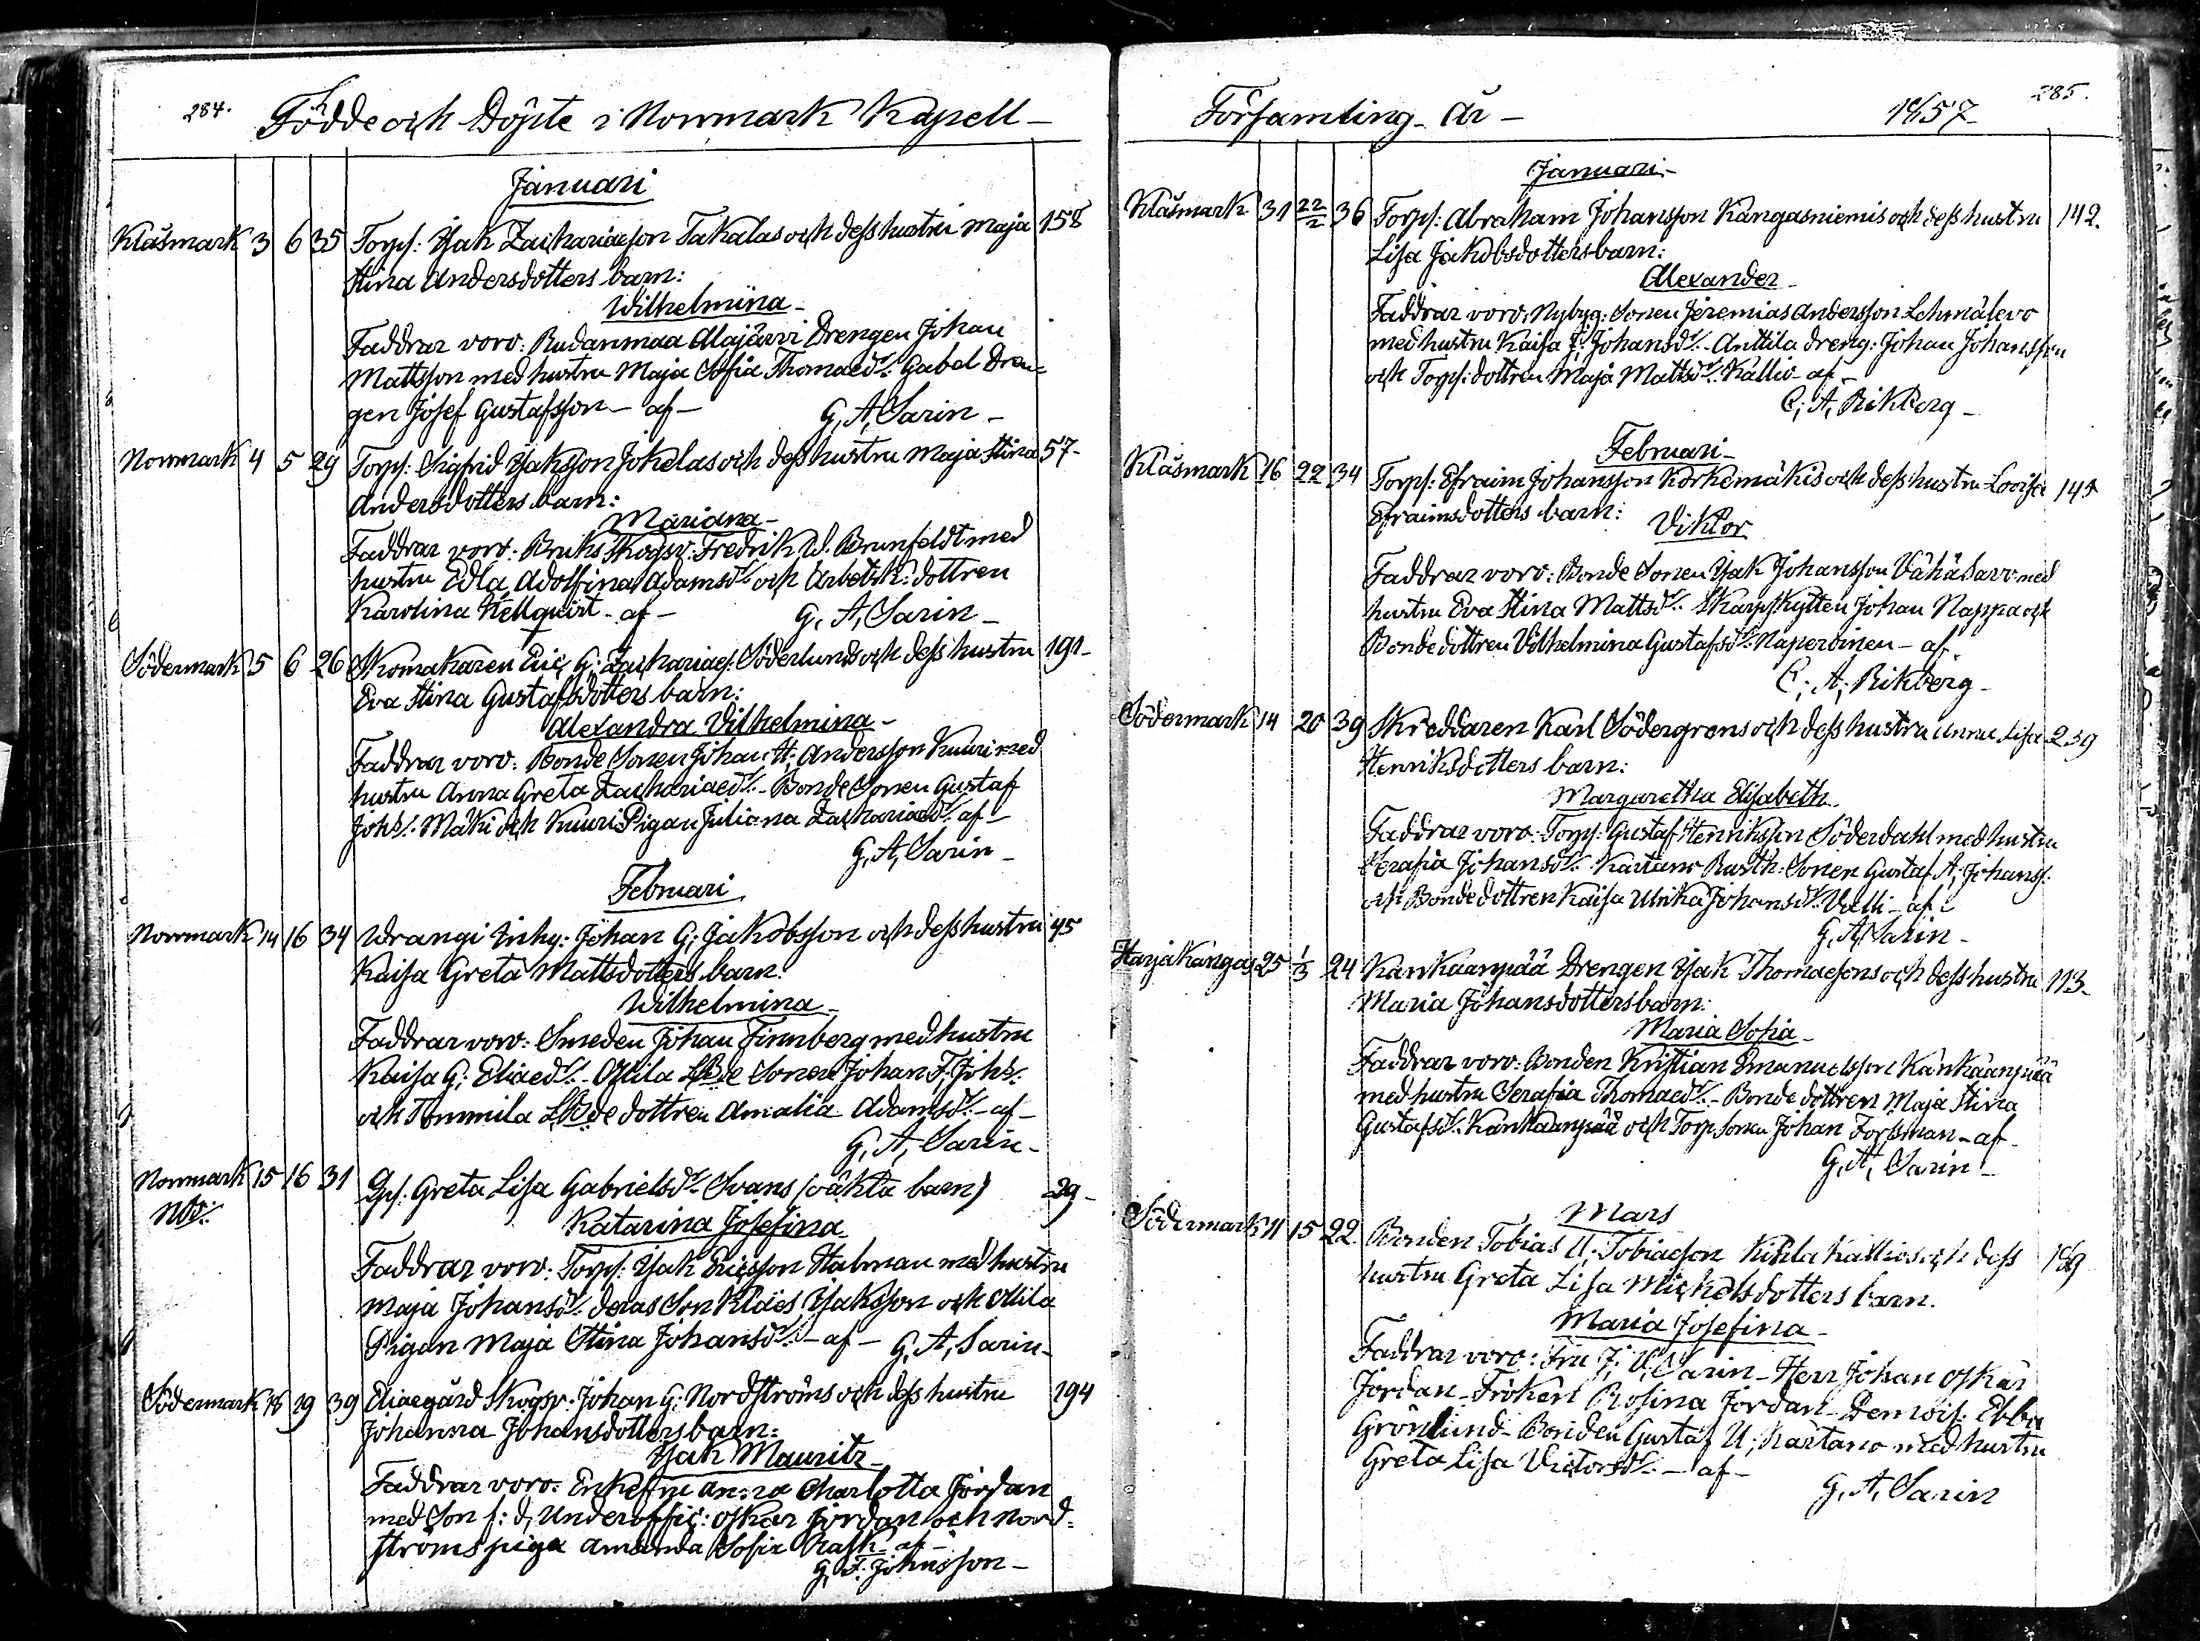 284.
Födde och Döpte i Norrmark Kapell -
Januari
Klåsmark 3 6 35 Torp: Isak Zachariaeson Takalas och dess hustru Maja 158
Stina Andersdotters barn:
Wilhelmina -
Faddrar voro: Rudanmaa Alajärvi Drengen Johan
Mattsson med hustru Maja Sofia Thomaed:r Gabel Dren-
gen Josef Gustafsson - af - G, A, Sarin -
Norrmark 4 5 29 Torp: Sigfrid Isaksson Jokelas och dess hustru Maja Stina 57-
Andersdotters barn:
Mariana -
Faddrar voro: Bruks Skogsv: Fredrik W. Brunfeldt med
hustru Edla Adolfina Adamsd:r och Arbetsk: dottren
Karolina Hellquist - af - G, A, Sarin -
Södermark 5 6 26 Skomakaren Eric G; Zachariaes: Söderlunds och dess hustru 191-
Eva Stina Gustafsdotters barn:
Alexandra Vilhelmina -
Faddrar voro: Bonde Sonen Johan H; Andersson Kuuri med
hustru Anna Greta Zachariaed:r - Bonde Sonen Gustaf
Johs:r Mäki och Kuuri Pigan Juliana Zachariaed:r af -
G, A, Sarin -
Februari
Norrmark 14 16 34 Wrangi Inhy: Johan G; Jakobsson och dess hustru 45
Kaisa Greta Mattsdotters barn:
Wilhelmina -
Faddrar voro: Smeden Johan Finnberg med hustru
Kaisa G; Eliaed:r - Ollila LBde Sonen Johan F, Johs:
och Tommila LBde dottren Amalia Adamsd:r - af -
G, A, Sarin -
Norrmark 15 16 31 Greta Lisa Gabrielsd:r Svans (oäkta barn) 29-
Nb:
Katarina Josefina
Faddrar voro: Torp: Isak Ericsson Stalman med hustru
Maja Johansd:r deras Son Klaes Isaksson och Ollila
Pigan Maja Stina Johansd:r - af - G, A, Sarin -
Södermark 18 19 39 Eliaegård Skogsv: Johan G; Nordströms och dess hustru 194
Johanna Johansdotters barn:
Isak Mauritz -
Faddrar voro: Enkefru Anna Charlotta Jordan
med Son f: d, Underoffic: Oskar Jordan och Nord-
ströms piga Amanda Sofia Rask - af -
G, F. Johnsson -
285.
Församling - År - 1857-
Januari -
Klåsmark 31 22/2 36 Torp: Abraham Johansson Kangasniemis och dess hustru 142.
Lisa Jakobsdotters barn:
Alexander -
Faddrar voro: Nybyg: Sonen Jeremias Andersson
med hustru Kaisa Johansd:r - Anttila dreng: Johan Johansson
och Torp: dottren Maja Mattsd:r Kallio - af -
C; A, Rikberg -
Februari -
Klåsmark 16 22 34 Torp: Efraim Johansson Korkemäkis och dess hustru Lovisa
Efraimsdotters barn:
Viktor
Faddrar voro: Bonde Sonen Isak Johansson Vähäsavo med
hustru Eva Stina Mattsd:r Skarpskytten Johan Nappa och
Bonde dottren Vilhelmina Gustafsd:r Naperoinen - af -
C; A; Rikberg -
Södermark 14 20 39 Skreddaren Karl Södergrens och dess hustru Anna Lisa 239
Henriksdotters barn:
Margaretha Elisabeth -
Faddrar voro: Torp: Gustaf Henriksson Söderdahl med hustru
Serafia Johansd:r Kartano Rusth: Sonen Gustaf A; Johans:
och Bonde dottren Kaisa Ulrika Johansd:r Valli - af -
G, A, Sarin -
Harjakangas 25 1/3 24 Kankaanpää Drengen Isak Thomaesons och dess hustru 113-
Maria Johansdotters barn:
Maria Sofia -
Faddrar voro: Bonden Kristian Emanuelsson Kankaanpää
med hustru Serafia Thomaed:r - Bonde dottren Maja Stina
Gustafsd:r Kankaanpää och Torp Sonen Johan Forssman - af -
G, A, Sarin -
Mars
Södermark 11 15 22 Bonden Tobias U; Tobiaesson Kikla Kallios och dess 189
hustru Greta Lisa Michelsdotters barn.
Maria Josefina -
Faddrar voro: Fru J; U, Sarin - Herr Johan Oskar
Jordan - Fröken Rosina Jordan - Demois: Ebba
Grönlund - Bonden Gustaf U; Kartano med hustru
Greta Lisa Victorsd:r - af -
G, A, Sarin